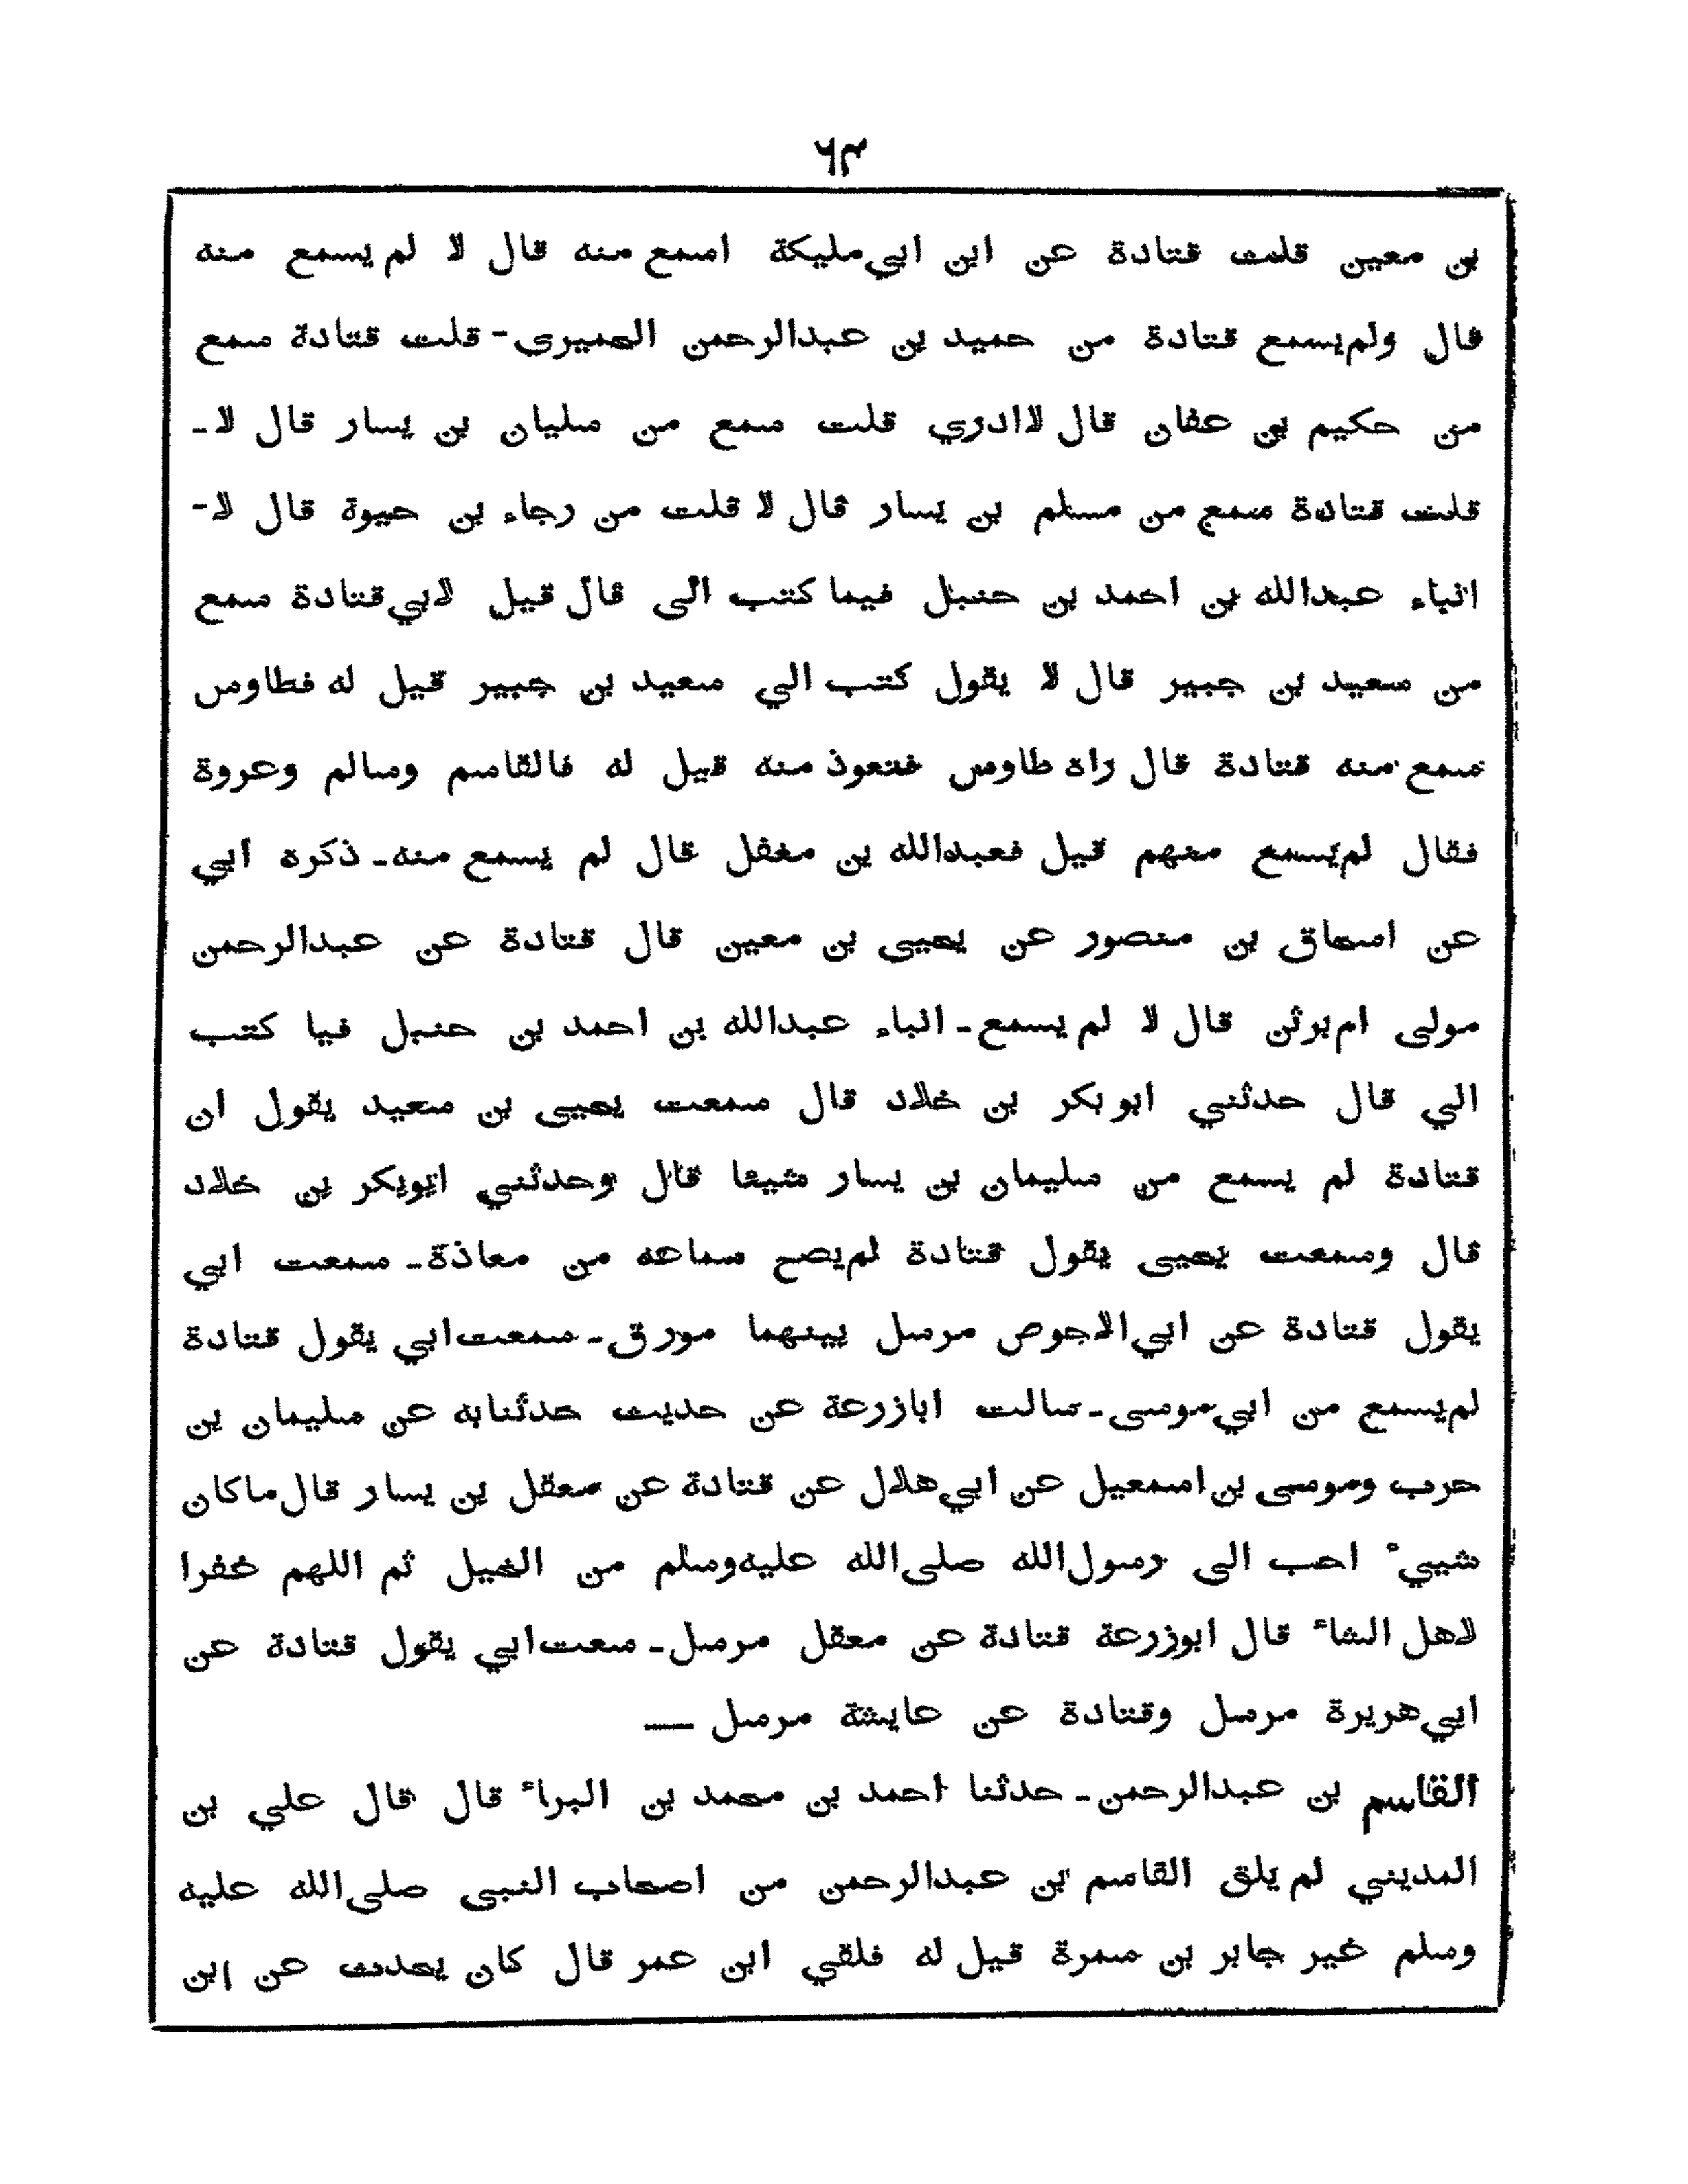 ٦٣
بن معين قلت قتادة عن ابن ابي مليكة اسمع منه قال لا لم يسمع منه
قال ولم يسمع قتادة من حميد بن عبدالرحمن الحميرى - قلت قتادة سمع
من حكيم بن عفان قال لا ادري قلت سمع من سليان بن يسار قال لا -
قلت قتادة سمع من مسلم بن يسار قال لا قلت من رجاء بن حيوة قال لا -
انباء عبدالله بن احمد بن حنبل فيما كتب الى قال قيل لابي قتادة سمع
من سعيد بن جبير قال لا يقول كتب الي سعيد بن جبير قيل له فطاوس
سمع منه قتادة قال راه طاوس فتعوذ منه قيل له فالقاسم وسالم وعروة
فقال لم يسمع منهم قيل فعبدالله بن مغفل قال لم يسمع منه - ذكرة ابي
عن اسحاق بن منصور عن يحيى بن معين قال قتادة عن عبدالرحمن
مولى ام برثن قال لا لم يسمع - انباء عبدالله بن احمد بن حنبل فيا كتب
الي قال حدثني ابو بكر بن خلاد قال سمعت يحيى بن سعيد يقول ان
قتادة لم يسمع من سليمان بن يسار شيئا قال وحدثني ابوبكر بن خلاد
قال وسمعت يحيى يقول قتادة لم يصح سماعه من معاذة - سمعت ابي
يقول قتادة عن ابي الاحوص مرسل بينهما مورق - سمعت ابي يقول قتادة
لم يسمع من ابي موسى - سالت ابازرعة عن حديث حدثنابه عن سليمان بن
حرب وموسى بن اسمعيل عن ابي هلال عن قتادة عن معقل بن يسار قال ماكان
شييء احب الى رسول الله صلى الله عليه وسلم من الخيل ثم اللهم غفرا
لاهل الشاء قال ابوزرعة قتادة عن معقل مرسل - سعت ابي يقول قتادة عن
ابي هريرة مرسل وقتادة عن عايشة مرسل —
القاسم بن عبدالرحمن - حدثنا احمد بن محمد بن البراء قال قال علي بن
المديني لم يلق القاسم بن عبدالرحمن من اصحاب النبى صلى الله عليه
وسلم غير جابر بن سمرة قيل له فلقي ابن عمر قال كان يحدث عن ابن